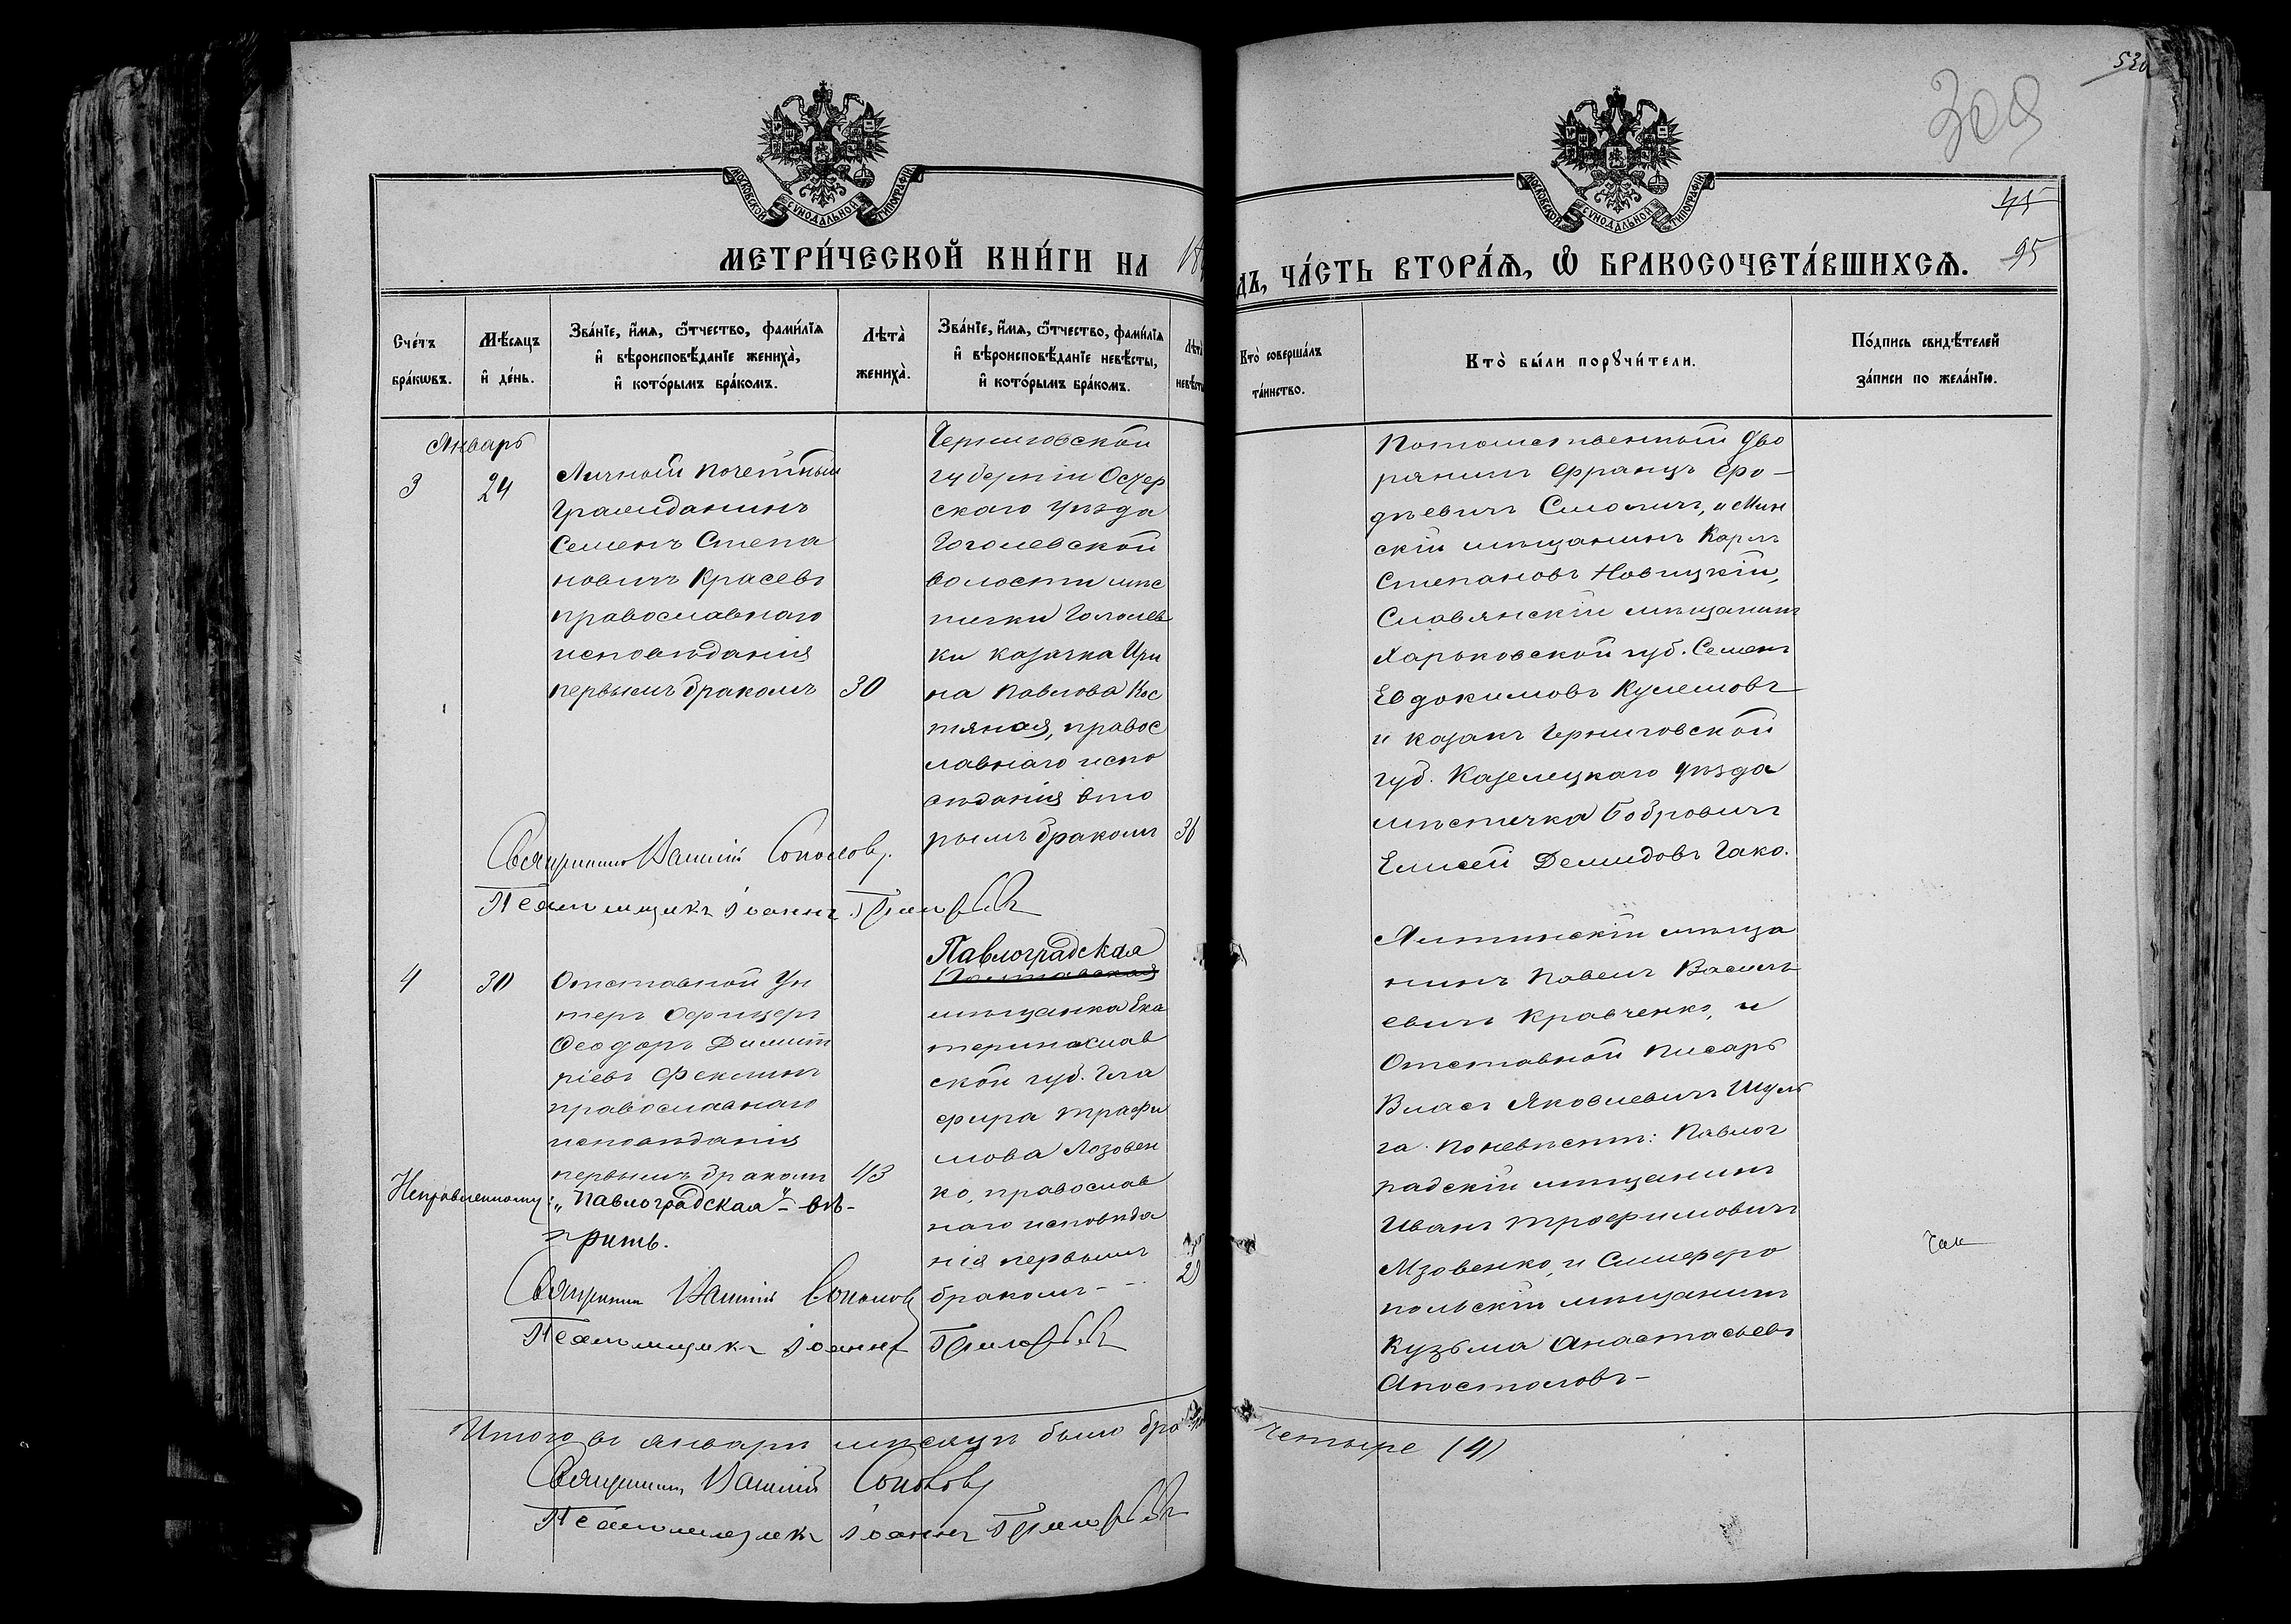 530
309
МОСКОВСКОЙ СѴНОДАЛЬНОЙ ТИПОГРАФІИ
МОСКОВСКОЙ СѴНОДАЛЬНОЙ ТИПОГРАФІИ
45
95
МЕТРИ́ЧЕСКОЙ КНИ́ГИ НА 18
ДЪ, ЧА́СТЬ ВТОРА́Ѧ, Ѽ БРАКОСОЧЕТА́ВШИХСѦ.
Сче́тъ
бра́кѡвъ.
Мѣ́сяцъ
и҆ де́нь.
Зва́нїе, и҆́мѧ, ѻ҆́тчество, фами́лїѧ
и҆ вѣроисповѣ́данїе жениха̀,
и҆ кото́рымъ бра́комъ.
Лѣта̀
жениха̀.
Зва́нїе, и҆́мѧ, ѻ҆́тчество, фами́лїѧ
и҆ вѣроисповѣ́данїе невѣ́сты,
и҆ кото́рымъ бра́комъ.
Лѣта̀
невѣсты
Кто̀ соверша́лъ
та́инство.
Кто̀ бы́ли порꙋчи́тели.
По́дпись свидѣ́телей
за́писи по жела́нїю.
Январь
3
24
Личный почетный
Гражданинъ
Семенъ Степа
новичъ Красевъ
православнаго
исповѣданія
первымъ бракомъ
30
Черниговской
губерніи Остер
скаго уѣзда
Гоголевской
волости мѣс
течки Гоголев
ки казачка Ири
на Павлова Кос
тяная, правос
лавнаго испо
вѣданія вто
рымъ бракомъ
36
Потомственный дво
рянинъ Францъ Фо-
дѣевичъ Смолич, и Мин
скій мѣщанинъ Карлъ
Степановъ Новицкій,
Славянскій мѣщанинъ
Харьковской губ. Семенъ
Евдокимовъ Кулешовъ
и казакъ Черниговской
губ. Козелецкаго уѣзда
мѣстечка Бобровичъ
Елисей Демидовъ Гако.
Священникъ Василій Соколовъ.
Псаломщикъ Іоаннъ
4
30
Отставной Ун
теръ Офицеръ
Ѳеодоръ Димит
ріевъ Феклинъ
православнаго
исповѣданія
первымъ бракомъ
43
Павлоградская
Полтавская
мѣщанка Ека
теринослав
ской губ. Гла
фира Трофи
мова Лозовен
ко, православ
наго исповѣда
нія первымъ
бракомъ -
29
Литинскій мѣща
нинъ Павелъ Василь
евичъ Кравченко, и
Отставной писарь
Власъ Яковлевичъ Шуль
га. По невѣстѣ: Павлог
радскій мѣщанинъ
Иванъ Трофимовичъ
Лозовенко, и Симферо
польскій мѣщанинъ
Кузьма Анастасьевъ
Апостоловъ-
Исправленному: „Павлоградская" - вѣ-
рить.
Священникъ Василій Соколовъ
Псаломщикъ Іоаннъ
Итого въ январѣ мѣсяцѣ было бра
Четыре (4)
Священникъ Василій Соколовъ
Псаломщикъ Іоаннъ